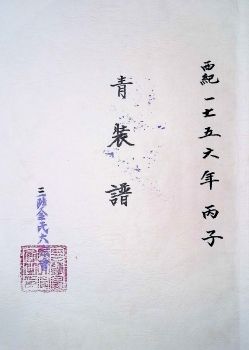 西紀一七五六年丙子
青裝譜
三陟金氏大宗會